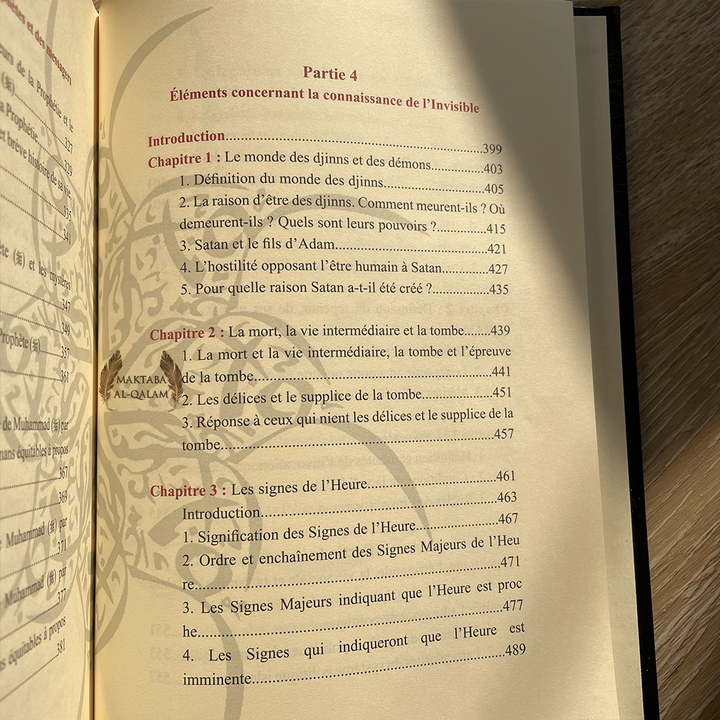 et des messagers
de la Prophétie et le
337
339
et brève histoire de sa vie
335
341
(ﷺ) et les mystères
347
349
Prophète (ﷺ)
357
361
de Muhammad (ﷺ) par
équitables à propos
367
369
Muhammad (ﷺ) par
371
Muhammad (ﷺ) par
377
équitables à propos
381
Partie 4
Éléments concernant la connaissance de l'Invisible
Introduction....................399
Chapitre 1 : Le monde des djinns et des démons....................403
1. Définition du monde des djinns....................405
2. La raison d'être des djinns. Comment meurent-ils ? Où
demeurent-ils ? Quels sont leurs pouvoirs ?....................415
3. Satan et le fils d'Adam....................421
4. L'hostilité opposant l'être humain à Satan....................427
5. Pour quelle raison Satan a-t-il été créé ?....................435
Chapitre 2 : La mort, la vie intermédiaire et la tombe........439
1. La mort et la vie intermédiaire, la tombe et l'épreuve
de la tombe....................441
2. Les délices et le supplice de la tombe....................451
3. Réponse à ceux qui nient les délices et le supplice de la
tombe....................457
Chapitre 3 : Les signes de l'Heure....................461
Introduction....................463
1. Signification des Signes de l'Heure....................467
2. Ordre et enchaînement des Signes Majeurs de l'Heu
re....................471
3. Les Signes Majeurs indiquant que l'Heure est proc
he....................477
4. Les Signes qui indiqueront que l'Heure est
imminente....................489
MAKTABA
AL-QALAM